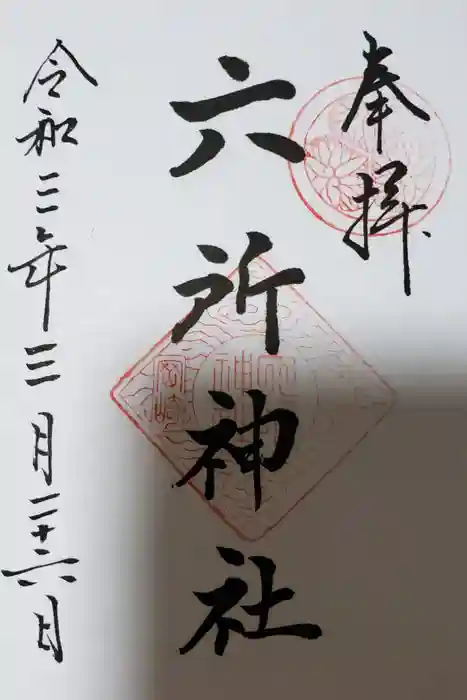 奉拝
六所神社
令和三年三月二十六日
岡崎